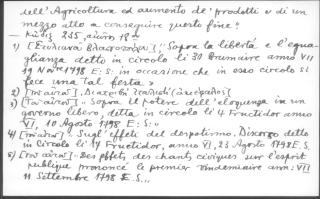 dell'Agricoltura ed aumento de' prodotti e di un
mezzo atto a conseguire questo fine!
235, 18
1) "Sopra la libertà e l'egua-
glianza detto in circolo li 30 Brumaire anno VII
19 Nbre 1798 E: S: in occasione che in esso circolo si
fece una tal festa»
2)
3) « Sopra il potere dell'eloquenza in un
governo libero, detta in circolo li 4 Fructidor anno
VI, 10 Agosto 1798 E: S:"
4) "Sugl'effetti del despotismo. Discorso detto
in Circolo li 4 Fructidor, anno VI, 23 Agosto 1798 E.S.
5) : Des effets, des chants civiques sur l'esprit
publique prononcé le premier Vendemiaire ann: VII
11 Settembre 1798 E. S...